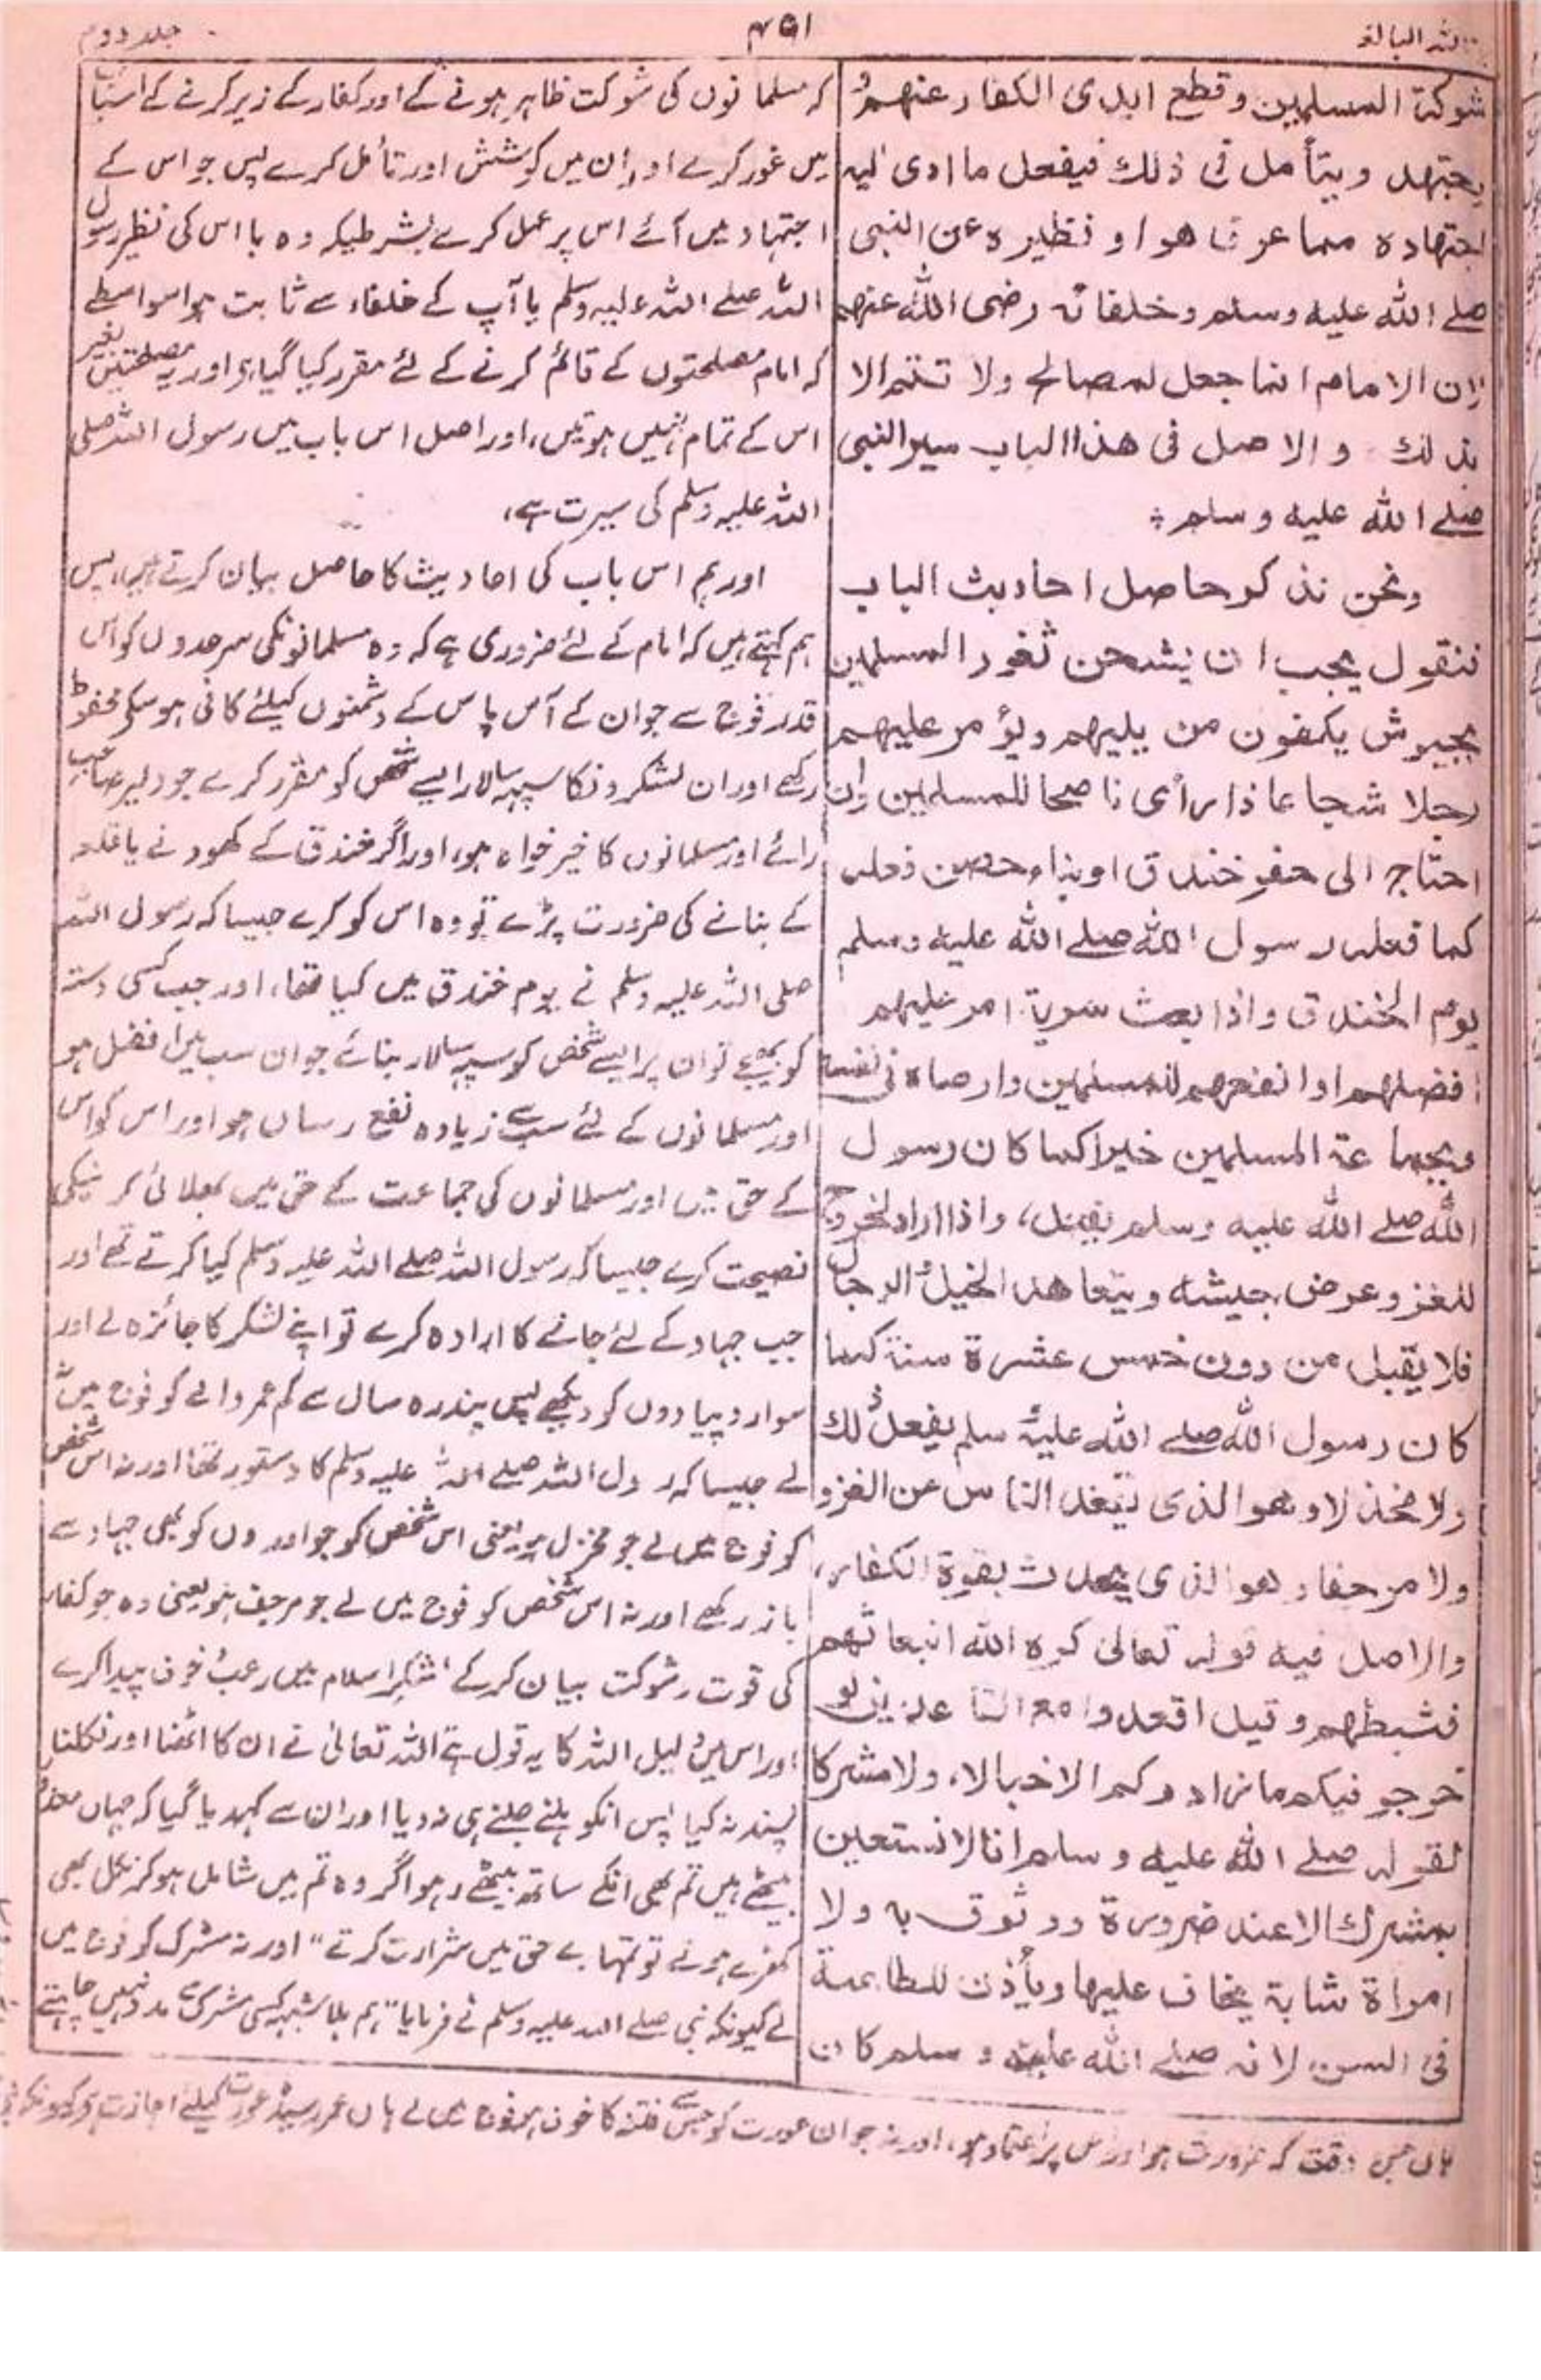 جلد دوم
۴۵۱
اللہ البالغہ
شوكة المسلمين وقطع ايدى الكفار عنهم
يجتهد ويتأمل فى ذلك فيفعل ما ادى اليه
اجتهاده مما عرف هو او نظيره عن النبى
صلے الله عليه وسلم وخلفائه رضى الله عنهم
لان الامام انما جعل لمصالح ولا تتم الا
بذلك والاصل فى هذا الباب سير النبى
صلے الله عليه وسلم ؛
ونحن نذكر حاصل احاديث الباب
فنقول يجب ان يشحن ثغور المسلمين
بجيوش يكفون من يليهم ويؤمر عليهم
رجلا شجاعا ذا رأى ناصحا للمسلمين وان
احتاج الى حفر خندق او بناء حصن فعله
كما فعله رسول الله صلے الله عليه وسلم
يوم الخندق واذا بعث سرية امر عليهم
افضلهم او انفعهم للمسلمين واوصاه فى نفسه
وبجماعة المسلمين خيرا كما كان رسول
الله صلے الله عليه وسلم يفعل، واذا اراد الخروج
للغزو عرض جيشه ويتعاهد الخيل والرجال
فلا يقبل من دون خمس عشرة سنة كما
كان رسول الله صلے الله عليه وسلم يفعل ذلك
ولا مخذلا وهو الذى يقعد الناس عن الغزو
ولا مرجفا وهو الذى يحدث بقوة الكفار،
والاصل فيه قوله تعالى كره الله انبعاثهم
فثبطهم وقيل اقعدوا مع القاعدين لو
خرجو فيكم ما زادوكم الا خبالا، ولا مشركا
لقوله صلے الله عليه وسلم انا لا نستعين
بمشرك الا عند ضرورة ووثوق به ولا
امراة شابة يخاف عليها ويأذن للطاعنة
فى السن لانه صلے الله عليه وسلم كان
کہ مسلمانوں کی شوکت ظاہر ہونے کے اور کفار کے زیر کرنے کے اسباب
میں غور کرے اور ان میں کوشش اور تأمل کرے پس جو اس کے
اجتہاد میں آئے اس پر عمل کرے بشرطیکہ وہ یا اس کی نظیر رسول
اللہ صلے اللہ علیہ وسلم یا آپ کے خلفاء سے ثابت ہو اسواسطے
کہ امام مصلحتوں کے قائم کرنے کے لئے مقرر کیا گیا ہے اور یہ مصلحتیں بغیر
اس کے تمام نہیں ہوتیں، اور اصل اس باب میں رسول اللہ صلی
اللہ علیہ وسلم کی سیرت ہے،
اور ہم اس باب کی احادیث کا حاصل بیان کرتے ہیں، پس
ہم کہتے ہیں کہ امام کے لئے ضروری ہے کہ وہ مسلمانونکی سرحدوں کو اس
قدر فوج سے جو ان کے آس پاس کے دشمنوں کیلئے کافی ہو سکے محفوظ
رکھے اور ان لشکرونکا سپہ سالار ایسے شخص کو مقرر کرے جو دلیر صاحب
رائے اور مسلمانوں کا خیر خواہ ہو، اور اگر خندق کے کھودنے یا قلعہ
کے بنانے کی ضرورت پڑے تو وہ اس کو کرے جیسا کہ رسول اللہ
صلی اللہ علیہ وسلم نے یوم خندق میں کیا تھا، اور جب کسی دستہ
کو بھیجے تو ان پر ایسے شخص کو سپہ سالار بنائے جو ان سب میں افضل ہو
اور مسلمانوں کے لئے سب سے زیادہ نفع رساں ہو اور اس کو اس
کے حق میں اور مسلمانوں کی جماعت کے حق میں بھلائی کر نیکی
نصیحت کرے جیسا کہ رسول اللہ صلے اللہ علیہ وسلم کیا کرتے تھے اور
جب جہاد کے لئے جانے کا ارادہ کرے تو اپنے لشکر کا جائزہ لے اور
سوار و پیادوں کو دیکھے پس پندرہ سال سے کم عمر والے کو فوج میں نہ
لے جیسا کہ رسول اللہ صلے اللہ علیہ وسلم کا دستور تھا اور نہ اس شخص
کو فوج میں لے جو مخذل ہو یعنی اس شخص کو جو اوروں کو بھی جہاد سے
باز رکھے اور نہ اس شخص کو فوج میں لے جو مرجف ہو یعنی وہ جو کفار
کی قوت و شوکت بیان کرکے لشکر اسلام میں رعب خوف پیدا کرے
اور اس میں دلیل اللہ کا یہ قول ہے اللہ تعالیٰ نے ان کا اٹھنا اور نکلنا
پسند نہ کیا پس انکو ہلنے جلنے ہی نہ دیا اور ان سے کہدیا گیا کہ جہاں معذور
بیٹھے ہیں تم بھی انکے ساتھ بیٹھے رہو اگر وہ تم میں شامل ہو کر نکل بھی
کھڑے ہوتے تو تمہارے حق میں شرارت کرتے" اور نہ مشرک کو فوج میں
لے کیونکہ نبی صلے اللہ علیہ وسلم نے فرمایا "ہم بلا شبہ کسی مشرک سے مدد نہیں چاہتے
ہاں جس وقت کہ ضرورت ہو اور اس پر اعتماد ہو، اور نہ جوان عورت کو جس سے فتنہ کا خوف ہو فوج میں لے ہاں عمر رسیدہ عورت کیلئے اجازت ہے کیونکہ